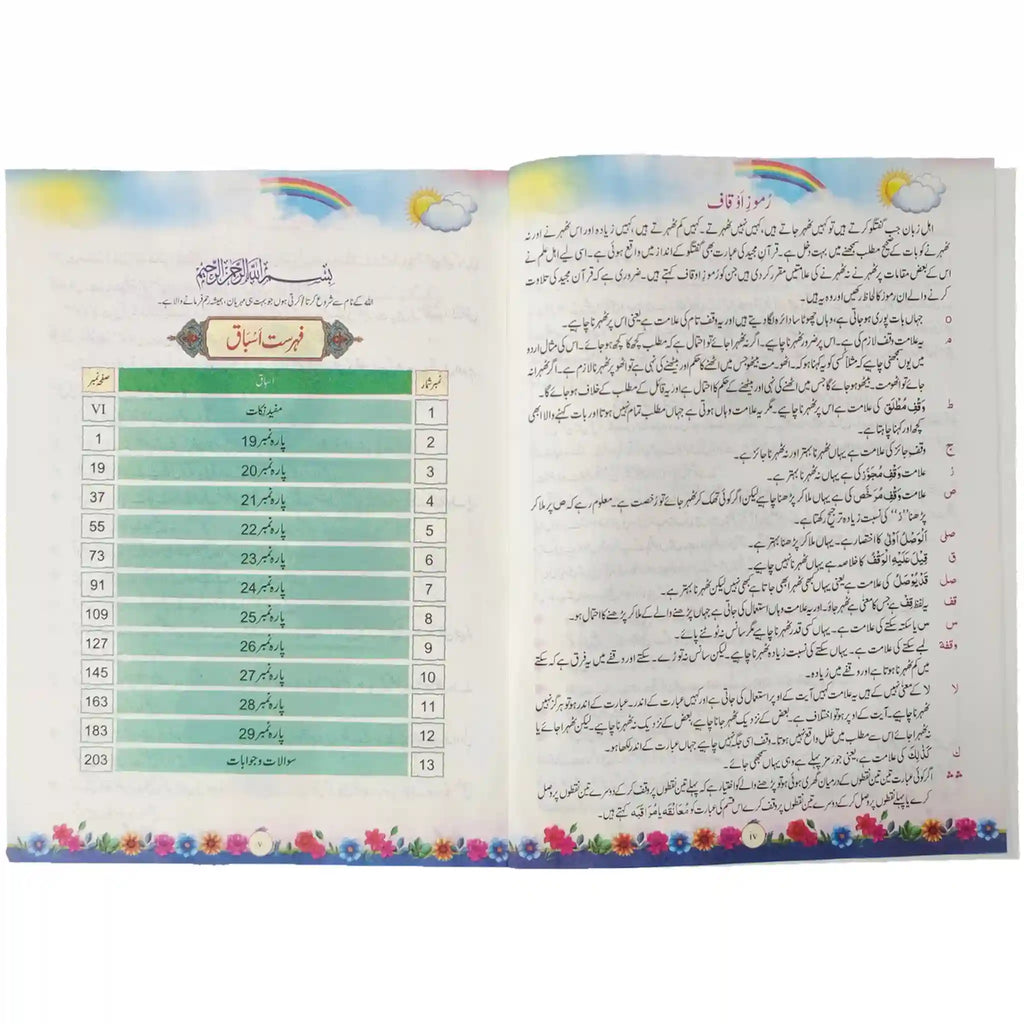 رُموزِ اَوقاف
اہل زبان جب گفتگو کرتے ہیں تو کہیں ٹھہر جاتے ہیں، کہیں نہیں ٹھہرتے۔ کہیں کم ٹھہرتے ہیں، کہیں زیادہ اور اس ٹھہرنے اور نہ
ٹھہرنے کو بات کے صحیح مطلب سمجھنے میں بہت دخل ہے۔ قرآنِ مجید کی عبارت بھی گفتگو کے انداز میں واقع ہوئی ہے۔ اسی لیے اہل علم نے
اس کے بعض مقامات پر ٹھہرنے نہ ٹھہرنے کی علامتیں مقرر کر دی ہیں جن کو رموزِ اوقاف کہتے ہیں۔ ضروری ہے کہ قرآن مجید کی تلاوت
کرنے والے ان رموز کا لحاظ رکھیں اور وہ یہ ہیں۔
o جہاں بات پوری ہو جاتی ہے، وہاں چھوٹا سا دائرہ لگا دیتے ہیں اور یہ وقف تام کی علامت ہے یعنی اس پر ٹھہرنا چاہیے۔
مـ یہ علامت وقف لازم کی ہے۔ اس پر ضرور ٹھہرنا چاہیے۔ اگر نہ ٹھہرا جائے تو احتمال ہے کہ مطلب کچھ کا کچھ ہو جائے۔ اس کی مثال اردو
میں یوں سمجھنی چاہیے کہ مثلاً کسی کو یہ کہنا ہو کہ۔ اٹھو۔ مت بیٹھو جس میں اٹھنے کا حکم اور بیٹھنے کی نہی ہے تو اٹھو پر ٹھہرنا لازم ہے۔ اگر ٹھہرا نہ
جائے تو اٹھومت۔ بیٹھو ہو جائے گا جس میں اٹھنے کی نہی اور بیٹھنے کے حکم کا احتمال ہے اور یہ قائل کے مطلب کے خلاف ہو جائے گا۔
ط وَقْفِ مُطْلَق کی علامت ہے اس پر ٹھہرنا چاہیے۔ مگر یہ علامت وہاں ہوتی ہے جہاں مطلب تمام نہیں ہوتا اور بات کہنے والا ابھی
کچھ اور کہنا چاہتا ہے۔
ج وقف جائز کی علامت ہے یہاں ٹھہرنا بہتر اور نہ ٹھہرنا جائز ہے۔
ز علامت وَقْفِ مُجَوَّز کی ہے یہاں نہ ٹھہرنا بہتر ہے۔
ص علامت وَقْفِ مُرَخَّص کی ہے یہاں ملا کر پڑھنا چاہیے لیکن اگر کوئی تھک کر ٹھہر جائے تو رخصت ہے۔ معلوم رہے کہ ص پر ملا کر
پڑھنا ”ز“ کی نسبت زیادہ ترجیح رکھتا ہے۔
صلی اَلْوَصْلُ اَوْلٰی کا اختصار ہے۔ یہاں ملا کر پڑھنا بہتر ہے۔
ق قِیْلَ عَلَیْہِ الْوَقْفُ کا خلاصہ ہے یہاں ٹھہرنا نہیں چاہیے۔
صل قَدْ یُوْصَلُ کی علامت ہے یعنی یہاں کبھی ٹھہرا بھی جاتا ہے کبھی نہیں لیکن ٹھہرنا بہتر ہے۔
قف یہ لفظ قِفْ ہے جس کا معنی ہے ٹھہر جاؤ۔ اور یہ علامت وہاں استعمال کی جاتی ہے جہاں پڑھنے والے کے ملا کر پڑھنے کا احتمال ہو۔
س س یا سکتہ سکتے کی علامت ہے۔ یہاں کسی قدر ٹھہرنا چاہیے مگر سانس نہ ٹوٹنے پائے۔
وقفة لمبے سکتے کی علامت ہے۔ یہاں سکتے کی نسبت زیادہ ٹھہرنا چاہیے۔ لیکن سانس نہ توڑے۔ سکتے اور وقفے میں یہ فرق ہے کہ سکتے
میں کم ٹھہرنا ہوتا ہے اور وقفے میں زیادہ۔
لا لا کے معنی نہیں کے ہیں یہ علامت کہیں آیت کے اوپر استعمال کی جاتی ہے اور کہیں عبارت کے اندر۔ عبارت کے اندر ہو تو ہرگز نہیں
ٹھہرنا چاہیے۔ آیت کے اوپر ہو تو اختلاف ہے۔ بعض کے نزدیک ٹھہر جانا چاہیے بعض کے نزدیک نہ ٹھہرنا چاہیے۔ لیکن ٹھہرا جائے یا
نہ ٹھہرا جائے اس سے مطلب میں خلل واقع نہیں ہوتا۔ وقف اسی جگہ نہیں چاہیے جہاں عبارت کے اندر لکھا ہو۔
ك كَذٰلِكَ کی علامت ہے، یعنی جو رمز پہلے ہے وہی یہاں سمجھی جائے۔
اگر کوئی عبارت تین تین نقطوں کے درمیان گھری ہوئی ہو تو پڑھنے والے کو اختیار ہے کہ پہلے تین نقطوں پر وقف کر کے دوسرے تین نقطوں پر وصل
کرے یا پہلے نقطوں پر وصل کر کے دوسرے تین نقطوں پر وقف کرے اس قسم کی عبارت کو مُعَانَقَہ یا مُرَاقَبَہ کہتے ہیں۔
IV
بِسْمِ اللّٰهِ الرَّحْمٰنِ الرَّحِيْمِ
اللہ کے نام سے شروع کرتا/کرتی ہوں جو بہت ہی مہربان، ہمیشہ رحم فرمانے والا ہے۔
فہرست اَسْبَاق
نمبر شمار اسباق صفحہ نمبر
1 مفید نکات VI
2 پارہ نمبر 19 1
3 پارہ نمبر 20 19
4 پارہ نمبر 21 37
5 پارہ نمبر 22 55
6 پارہ نمبر 23 73
7 پارہ نمبر 24 91
8 پارہ نمبر 25 109
9 پارہ نمبر 26 127
10 پارہ نمبر 27 145
11 پارہ نمبر 28 163
12 پارہ نمبر 29 183
13 سوالات و جوابات 203
V